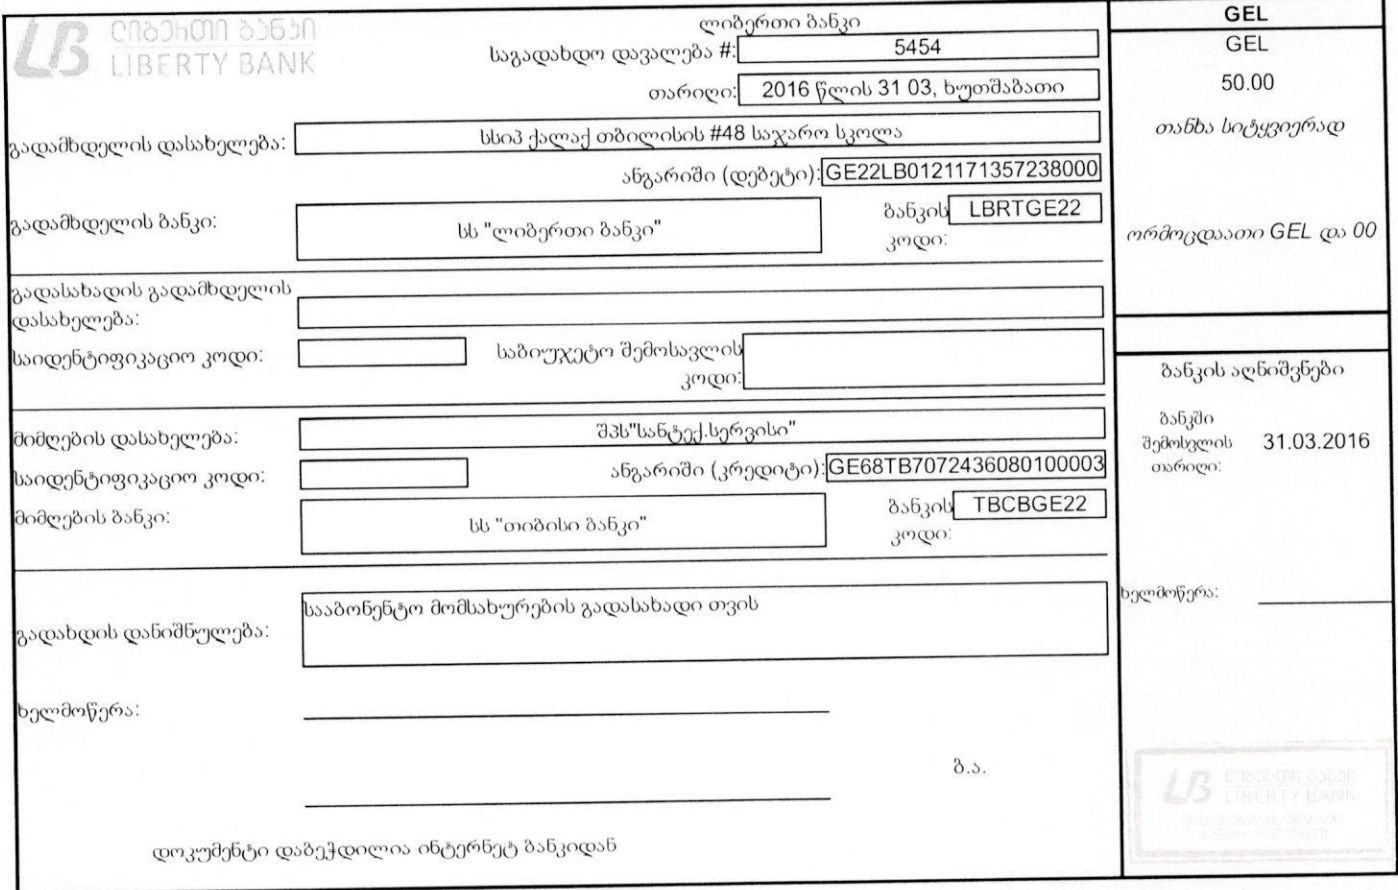 ლიბერთი ბანკი
LIBERTY BANK
ლიბერთი ბანკი
საგადახდო დავალება #: 5454
თარიღი: 2016 წლის 31 03, ხუთშაბათი
გადამხდელის დასახელება: სსიპ ქალაქ თბილისის #48 საჯარო სკოლა
ანგარიში (დებეტი): GE22LB0121171357238000
გადამხდელის ბანკი: სს "ლიბერთი ბანკი" ბანკის კოდი: LBRTGE22
გადასახადის გადამხდელის
დასახელება:
საიდენტიფიკაციო კოდი: საბიუჯეტო შემოსავლის
კოდი:
მიმღების დასახელება: შპს"სანტექ.სერვისი"
საიდენტიფიკაციო კოდი: ანგარიში (კრედიტი): GE68TB7072436080100003
მიმღების ბანკი: სს "თიბისი ბანკი" ბანკის კოდი: TBCBGE22
გადახდის დანიშნულება: სააბონენტო მომსახურების გადასახადი თვის
ხელმოწერა:
ბ.ა.
დოკუმენტი დაბეჭდილია ინტერნეტ ბანკიდან
GEL
GEL
50.00
თანხა სიტყვიერად
ორმოცდაათი GEL და 00
ბანკის აღნიშვნები
ბანკში
შემოსვლის 31.03.2016
თარიღი:
ხელმოწერა:
LB ლიბერთი ბანკი
LIBERTY BANK